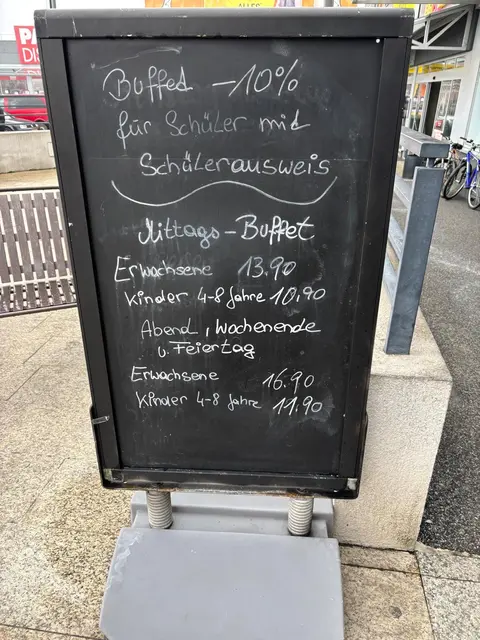 Buffet -10%
für Schüler mit
Schülerausweis
Mittags-Buffet
Erwachsene 13.90
Kinder 4-8 Jahre 10.90
Abend, Wochenende
u. Feiertag
Erwachsene 16.90
Kinder 4-8 Jahre 11.90